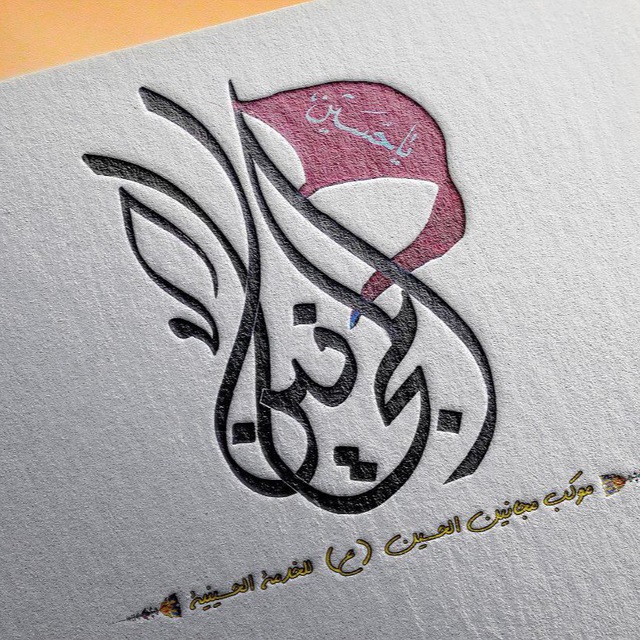 ياحسين
المجانين
موكب مجانين الحسين (ع) للخدمة الحسينية